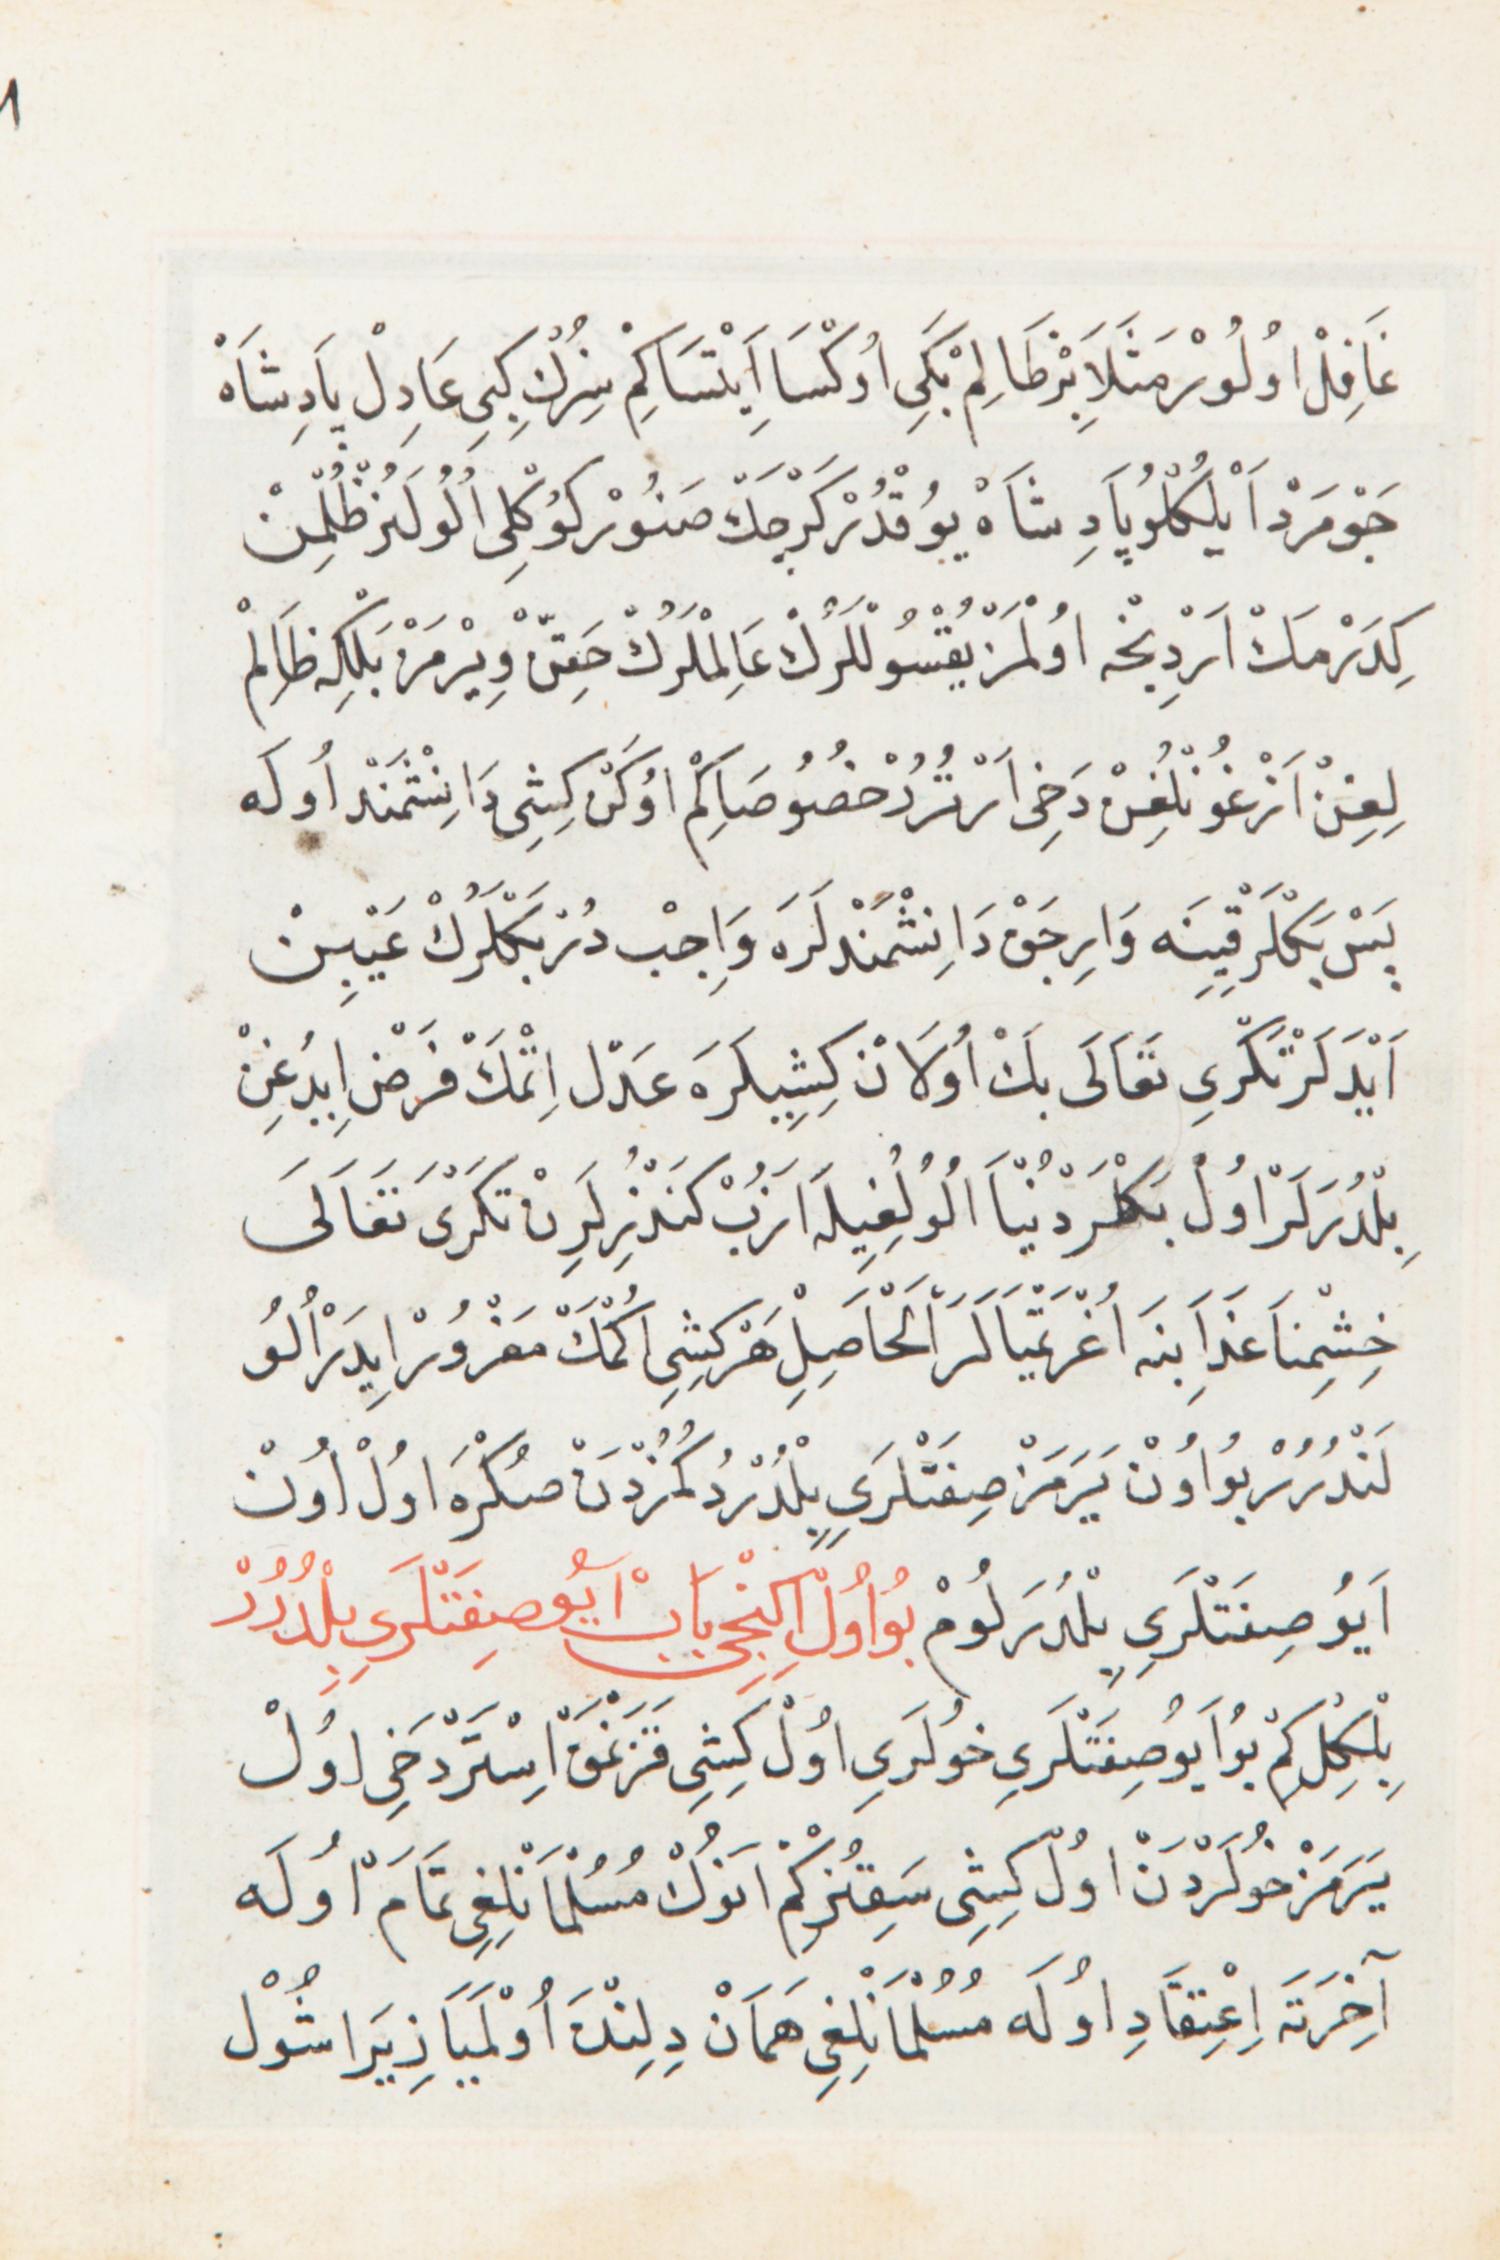 غَافِلْ اوُلُورْ مَثَلَا بِرْ ظَالِمْ بَكِى اوُكْسَا اَيِتْسَاكِمْ سِزُكْ كِبِى عَادِلْ پَادِشَاهْ
جَوْمَرْدْ اَيْلِكْلُو پَادِشَاهْ يُوقْدُرْ كَرْچَكْ صَنُورْ كَوُكْلِى اُلُولَنُرْ ظُلْمِنْ
كِدَرْمَكْ اَرْدِنْجَه اوُلْمَزْ يُقْسُولْلَرُكْ عَالِمْلَرُكْ حَقِنْ وِيرْمَزْ بَلْكِه ظَالِمْ
لِغِنْ اَزْغُونْلِغِنْ دَخِى اَرْتُرُرْ خُصُوصَاكِمْ اوُكَنْ كِشِى دَانِشْمَنْد اُولَه
پَسْ بَكْلَرْ قَتِنَه وَارِجَقْ دَانِشْمَنْدلَرَه وَاجِبْ دُرْ بَكْلَرُكْ عَيْبِنْ
اَيْدَلَرْ تَكْرِى تَعَالَى بَكْ اُولَانْ كِشِيلَرَه عَدْل اِتْمَكْ فَرْض اِيدُغِنْ
بِلْدُرَلَرْ اوُلْ بَكْلَرْ دُنْيَا اُلُولُغِيلَه اَزُبْ كَنْدُزْلَرِنْ تَكْرِى تَعَالَى
خِشْمِنَا عَذَابِنَه اُغْرَتْمَيَالَرْ اَلْحَاصِلْ هَرْ كِشِى اُكْمَكْ مَغْرُورْ اِيدَرْ اُلُو
لَنْدُرُرْ بُو اوُنْ يَرَمَزْ صِفَتْلَرِى بِلْدُرْدُكُمُزْدَنْ صُكْرَه اوُلْ اوُنْ
اَيُو صِفَتْلَرِى بِلْدُرَلُومْ بُو اوُلْ اِكِنْجِى بَابْ اَيُو صِفَتْلَرِى بِلْدُرُرْ
بِلْكِلْ كِمْ بُو اَيُو صِفَتْلَرِى خُولَرِى اوُلْ كِشِى قَزَنْمَقْ اِسْتَرْ دَخِى اوُلْ
يَرَمَزْ خُولَرْدَنْ اوُلْ كِشِى سَقِنُرْ كِمْ اَنُوكْ مُسُلْمَانْلِغِى تَمَامْ اُولَه
آخِرَتَه اِعْتِقَادِ اُولَه مُسُلْمَانْلِغِى هَمَانْ دِلِنْدَه اُوْلْمَيَا زِيرَا شُولْ